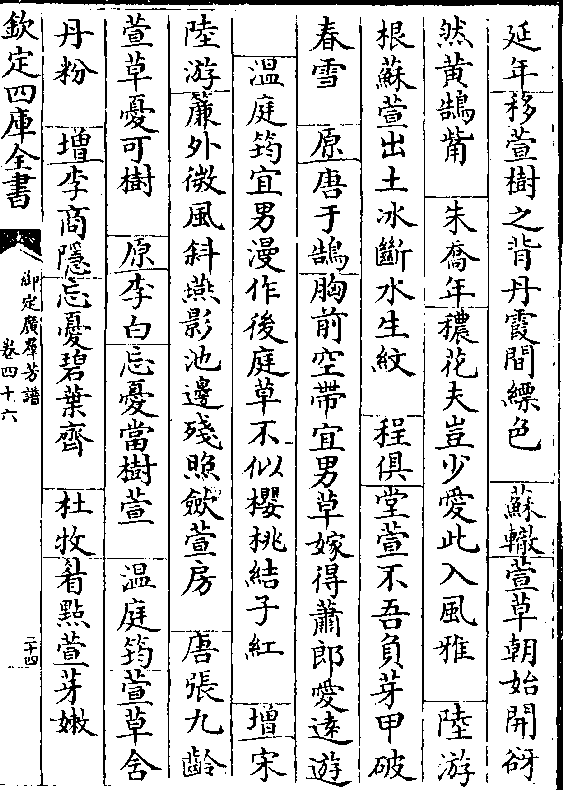 延年移萱樹之背丹霞間縹色　蘇轍萱草朝始開谺
然黃鵠觜　朱喬年穠花夫豈少愛此入風雅　陸游
根蘇萱出土冰斷水生紋　程俱堂萱不吾負芽甲破
春雪　原唐于鵠胸前空帶宜男草嫁得蕭郎愛遠遊
溫庭筠宜男漫作後庭草不似櫻桃結子紅　增宋
陸游簾外微風斜燕影池邊殘照斂萱房　唐張九齡
萱草憂可樹　原李白忘憂當樹萱　溫庭筠萱草含
丹粉　增李商隱忘憂碧葉齊　杜牧看點萱芽嫩
欽定四庫全書
御定廣羣芳譜
卷四十六
二十四